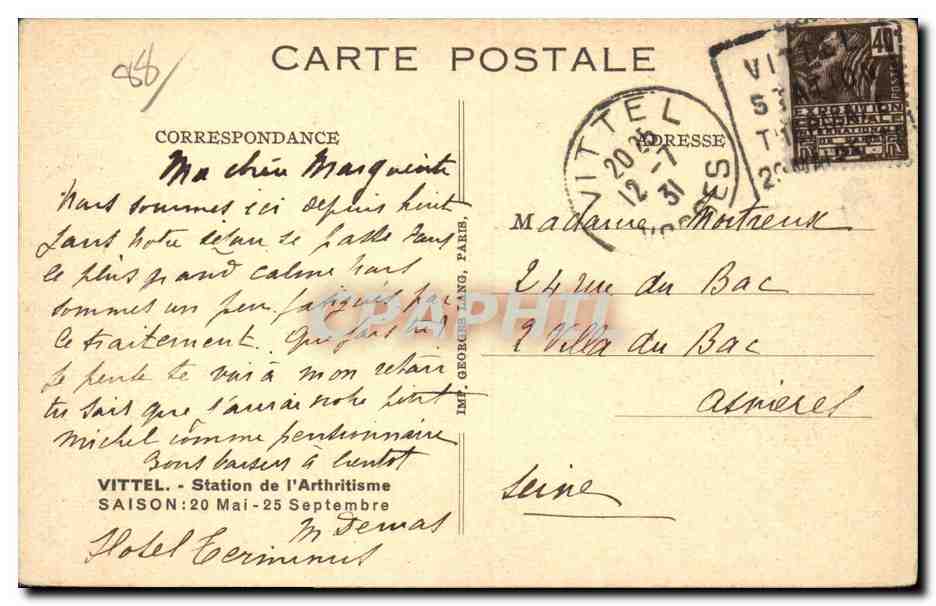 88
CARTE POSTALE
CORRESPONDANCE
Ma chère Marguerite
Nous sommes ici depuis huit
jours notre séjour se passe dans
le plus grand calme nous
sommes un peu fatigués par
le traitement. Que fais tu?
Je pense te voir à mon retour
tu sais que j'aurai notre petit
michel comme pensionnaire
Bons baisers à bientôt
VITTEL. - Station de l'Arthritisme
SAISON: 20 Mai - 25 Septembre
M Demas
Hotel Terminus
IMP. GEORGES LANG, PARIS.
VITTEL
20 25
12 - 7
31
VOSGES
40c
POSTES
EXPOSITION
COLONIALE
INTERNATIONALE
PARIS
1931
ADRESSE
Madame Moitreux
24 rue du Bac
2 Villa du Bac
Asnières
Seine
CPAPHIL